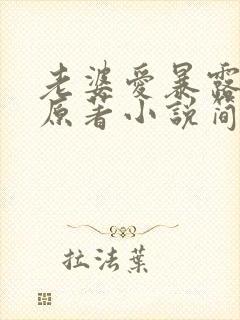 老婆愛暴露
原著小說簡
拉法葉